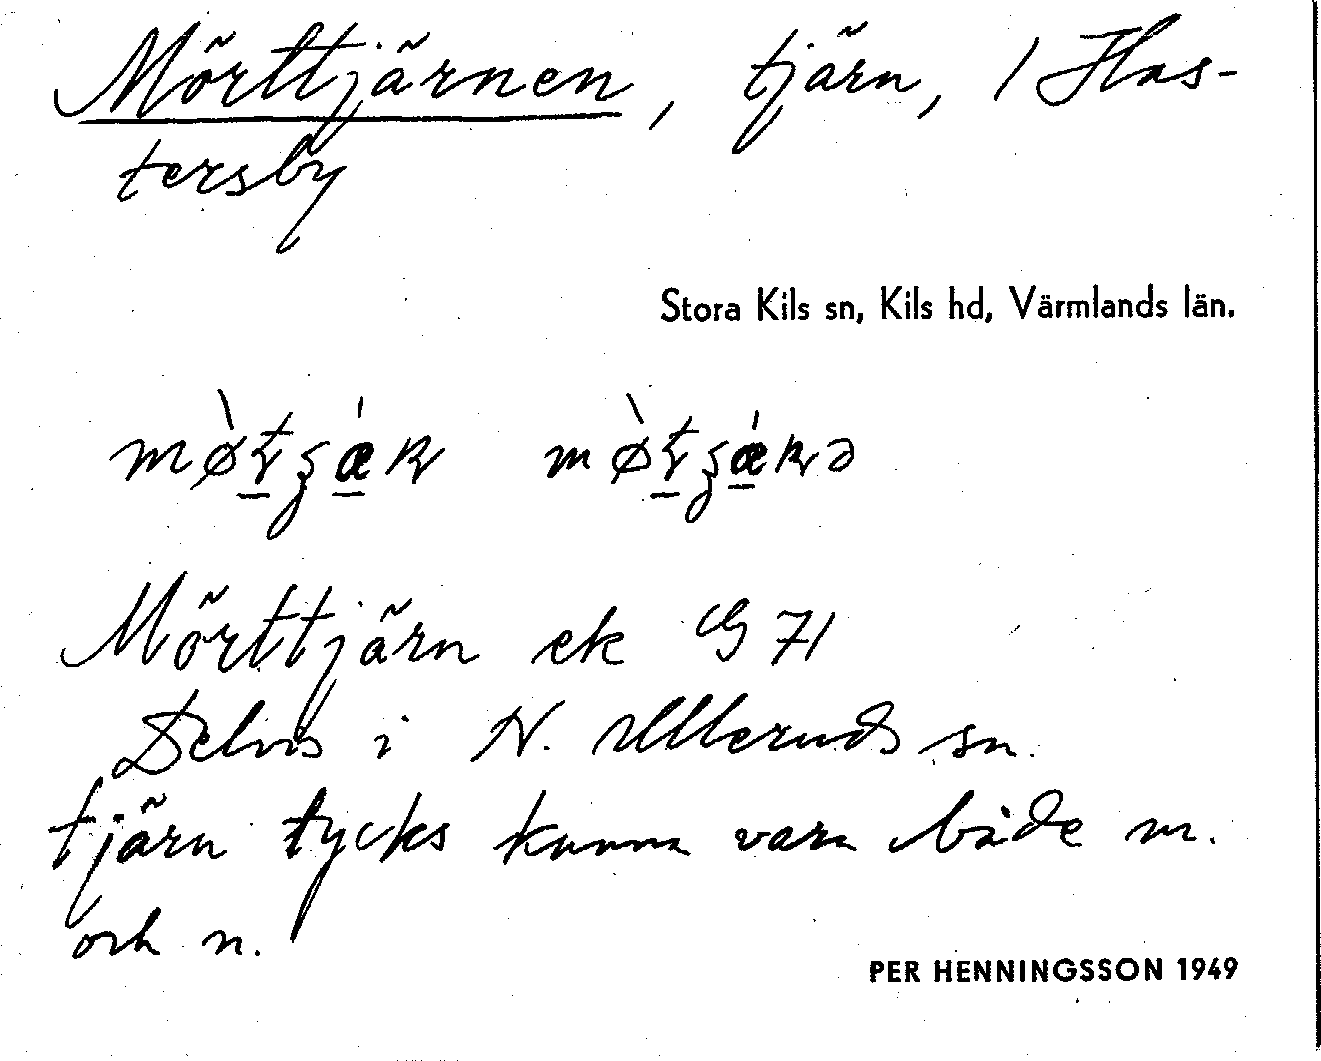 Mörttjärnen, tjärn, 1 Has-
tersby
Stora Kils sn, Kils hd, Värmlands län.
Mörttjärn ek G 71
Delvis i N. Ulleruds sn.
tjärn tycks kunna vara både m.
och n.
PER HENNINGSSON 1949